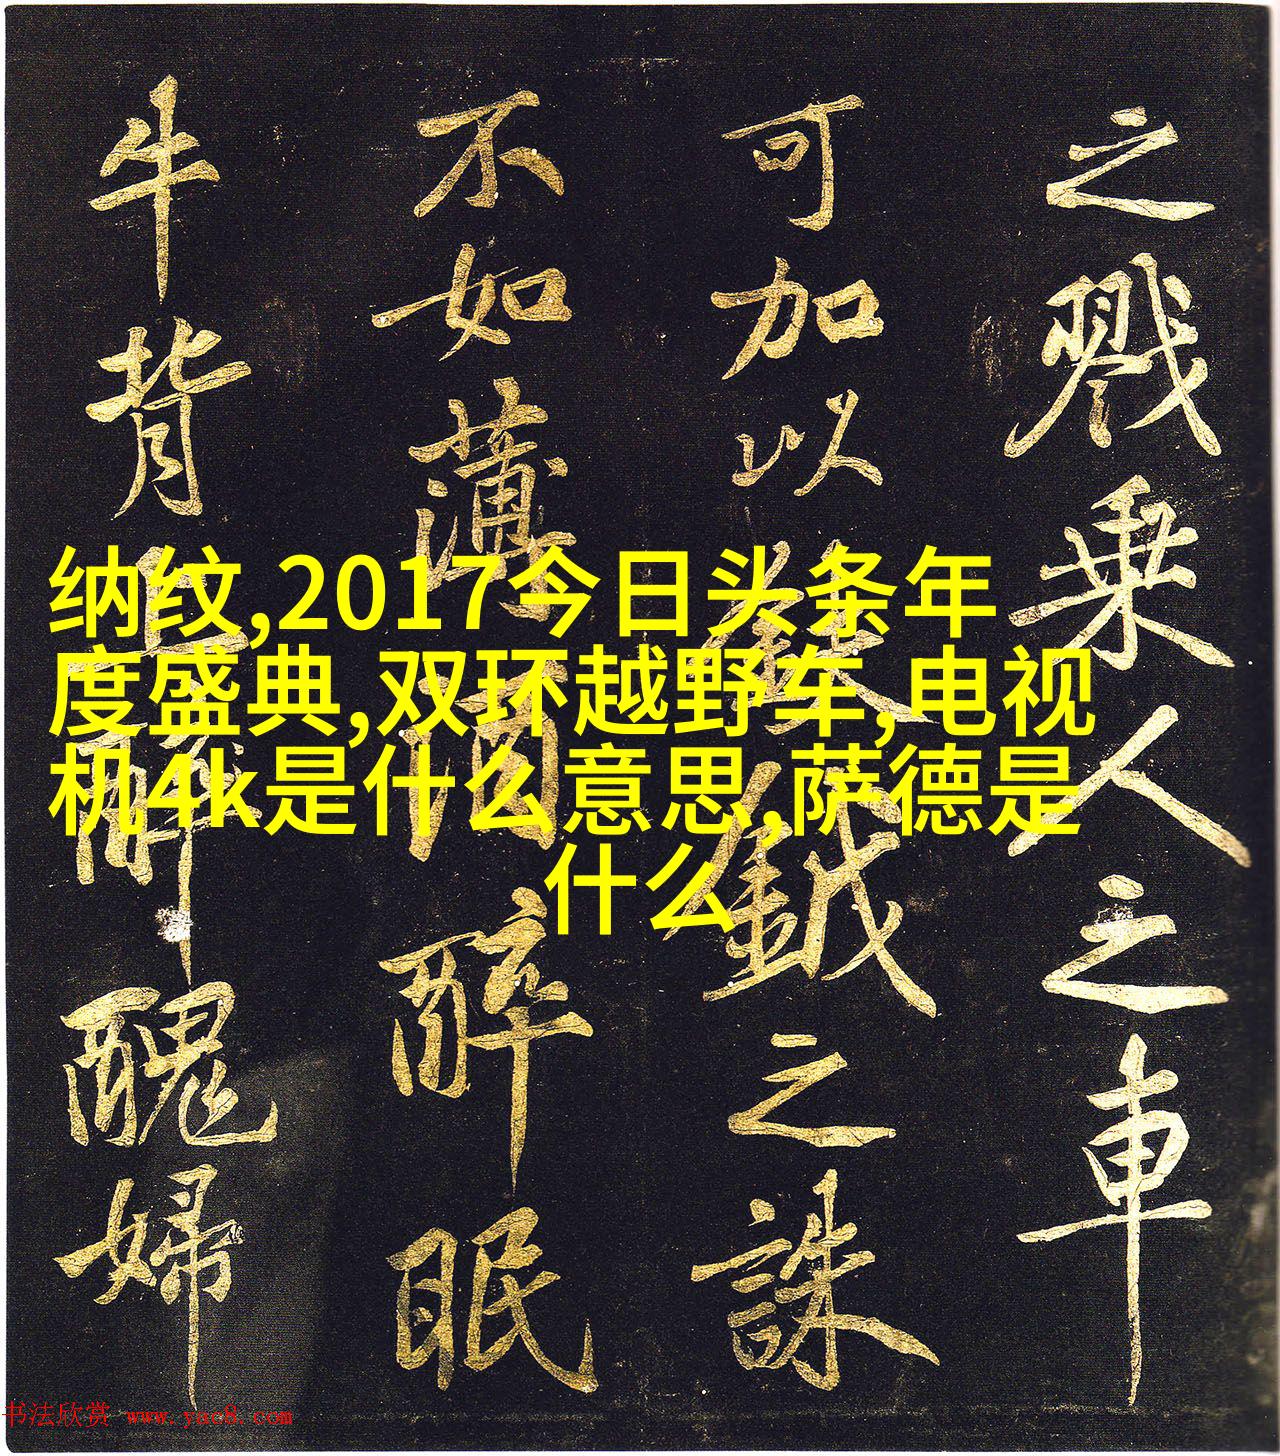 之戮乗人之車
可加以
鉞之誅
不如薄
酒醉眠
牛背
醜婦
纳纹,2017今日头条年
度盛典,双环越野车,电视
机4k是什么意思,萨德是
什么
书法欣赏 www.yac8.com